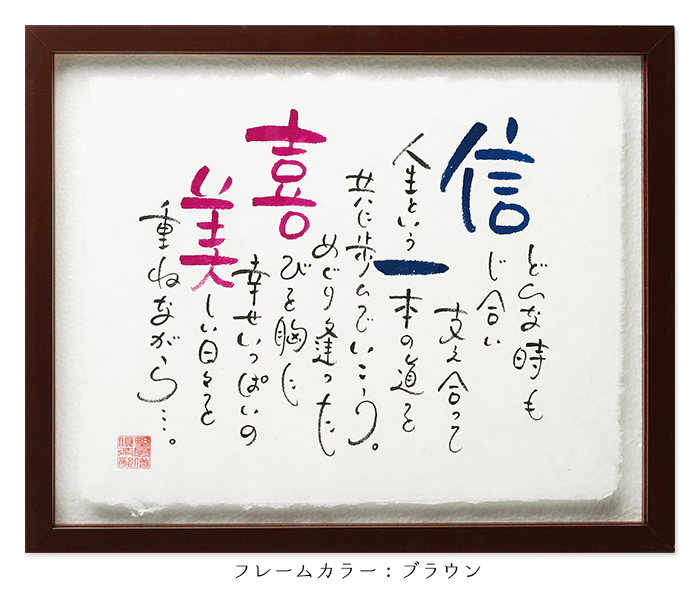 どんな時も
信じ合い
支え合って
人生という一本の道を
共に歩んでいこう。
めぐり逢った
喜びを胸に
幸せいっぱいの
美しい日々を
重ねながら…。
フレームカラー：ブラウン